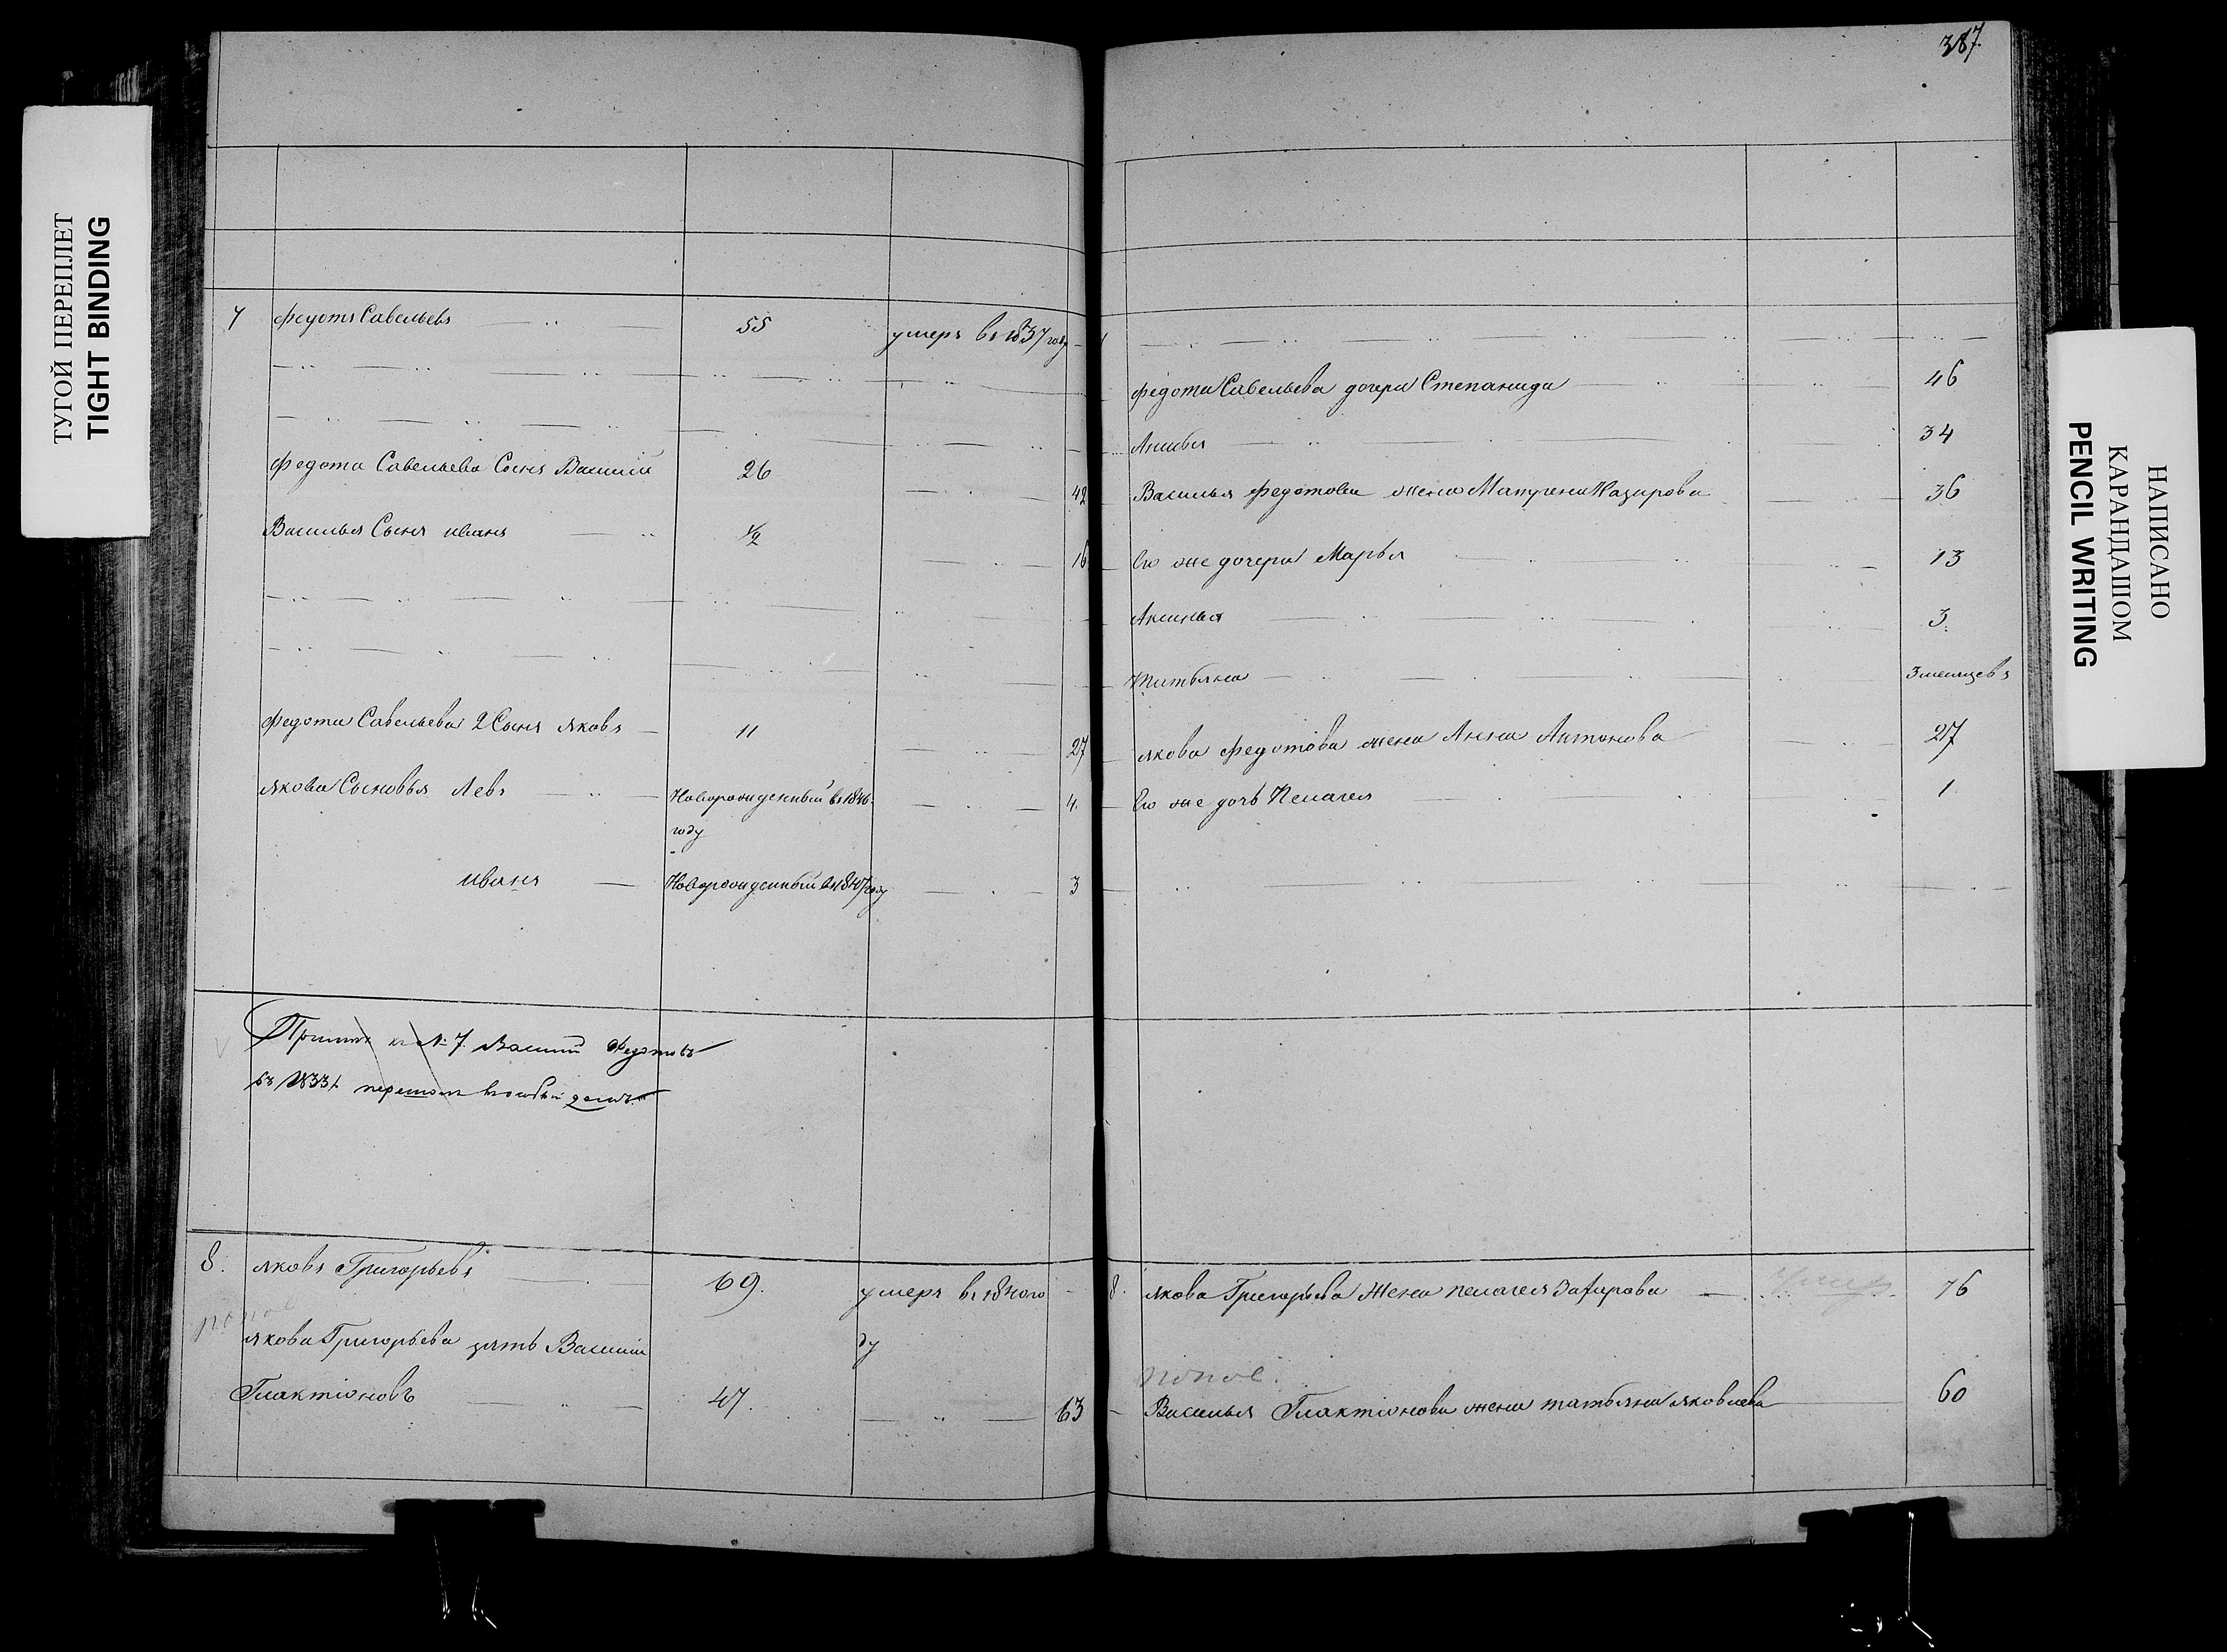 387.
ТУГОЙ ПЕРЕПЛЕТ
TIGHT BINDING
7 Федотъ Савельевъ 55 умеръ въ 1837 году
Федота Савельева Сынъ Василiй 26 42
Василья Сынъ иванъ 1/2 16
Федота Савельева 2 Сынъ яковъ 11 27
якова Сыновья Левъ Новорожденный въ 1846 4.
году
иванъ Новорожденный въ 1847 году 3
къ № 7. Василий Федотовъ
въ 1833 г. перешолъ
8. яковъ Григорьевъ 69. умеръ въ 1840 го
попов
якова Григорьева зять Василiй ду
Глактiоновъ 47. 63
Федота Савельева дочери Степанида 46
34
Василья Федотова жена Матрена Назарова 36
Ево же дочери Марья 13
Аксинья 3.
татьяна 3 месяцевъ
якова Федотова жена Анна Антонова 27
Ево же дочь Пелагея 1
8. якова Григорьева Жена пелагея Захарова 76
попов.
Василья Глактiонова жена татьяна яковлева 60
НАПИСАНО
КАРАНДАШОМ
PENCIL WRITING